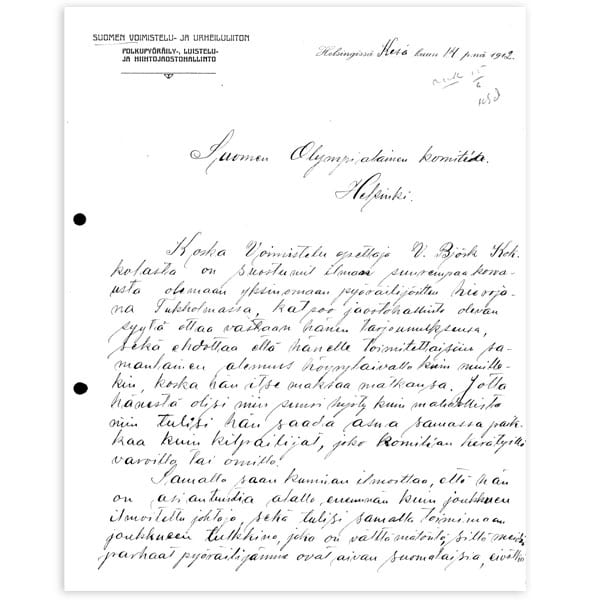 SUOMEN VOIMISTELU- JA URHEILULIITON
POLKUPYÖRÄILY-, LUISTELU-
JA HIIHTOJAOSTOHALLINTO
Helsingissä Kesä kuun 14 p:nä 1912.
Suomen Olympialainen komitéa.
Helsinki.
Koska Voimistelu opettaja V. Björk Kok-
kolasta on suostunut ilman suurempaa korva-
usta olemaan yksinomaan pyöräilijöitten hieroja-
na Tukholmassa, katsoo jaostohallinto olevan
syytä ottaa vastaan hänen tarjoumuksensa,
sekä ehdottaa että hänelle toimitettaisiin sa-
manlainen alennus höyrylaivalla kuin muille-
kin, koska hän itse maksaa matkansa. Jotta
hänestä olisi niin suuri hyöty kuin mahdollista
niin tulisi hän saada asua samassa paik-
kaa kuin kilpailijat, joko komitéan
varoilla tai omilla.
Samalla saan kunnian ilmoittaa, että hän
on asiantuntia alalla, enemmän kuin joukkueen
ilmoitettu johtaja, sekä tulisi samalla toimimaan
joukkueen tulkkina, joka on välttämätöntä, sillä
parhaat pyöräilijämme ovat aivan suomalaisia, eivätkä